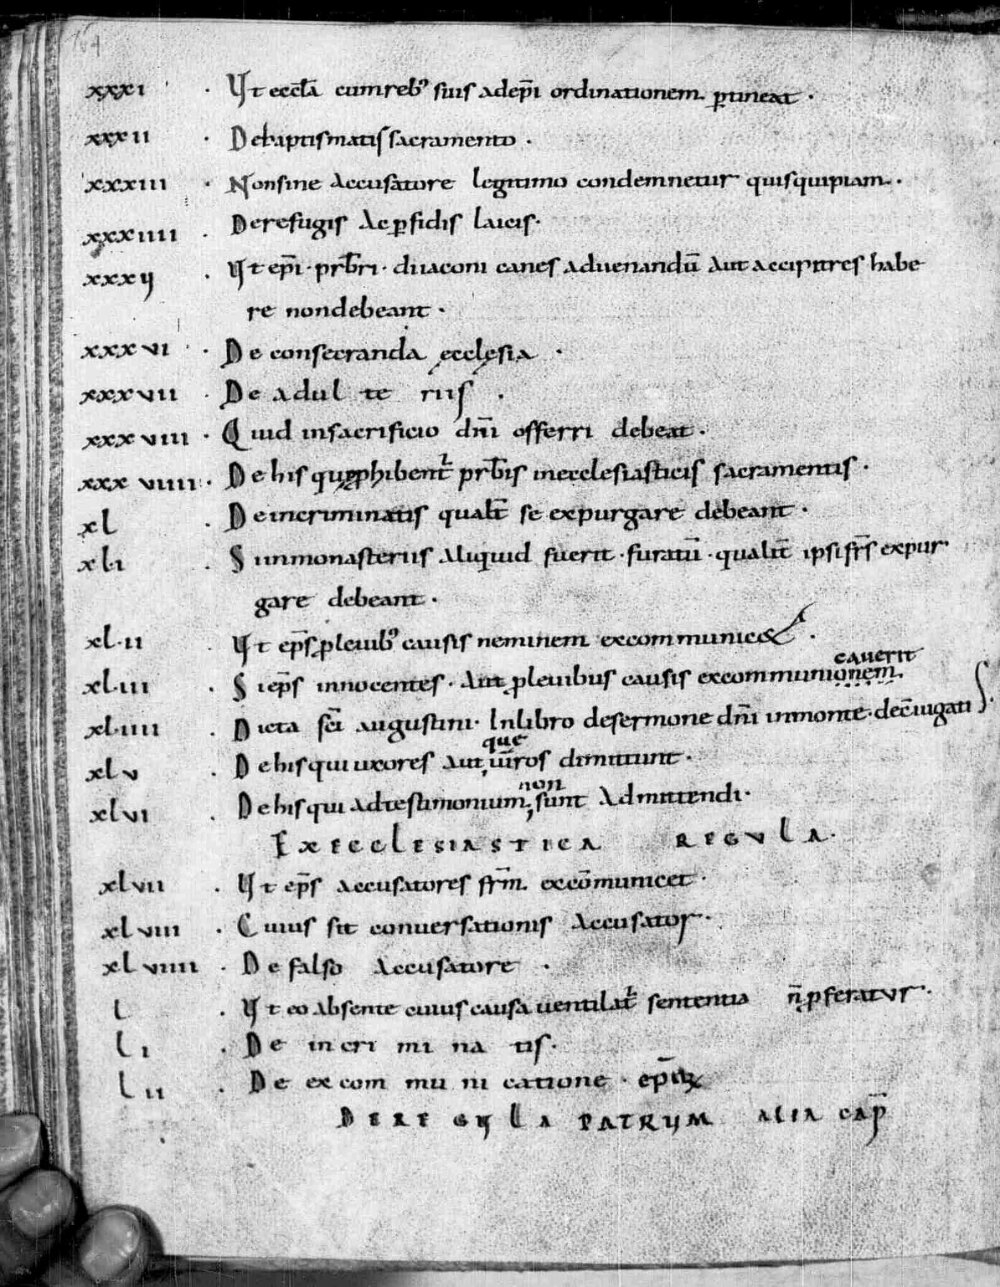 164
xxxi · Ut eccła cum reb' suis ad ep̄i ordinationem ꝑtineat ·
xxxii · De baptismatis sacramento ·
xxxiii · Non sine accusatore legitimo condemnetur quisquipiam ·
xxxiiii · De refugis ac ꝑfidis laicis ·
xxxv · Ut ep̄i · prb̄ri · diiaconi canes ad uenandū aut accipitres habe
re non debeant ·
xxxvi · De consecranda ęcclęsia ·
xxxvii · De adulteriis ·
xxxviii · Quid in sacrificio dn̄i offerri debeat ·
xxxviiii · De his quę ꝓhibent᷑ prb̄is in ecclesiasticis sacramentis ·
xl · De incriminatis qualit᷑ se expurgare debeant ·
xli · Si in monasteriis aliquid fuerit · furatū · qualit᷑ ipsi fr̄s expur
gare debeant ·
xl·ii · Ut ep̄s ꝓ leuib' causis neminem excommunic& ·
cauerit
xl·iii · Si ep̄s innocentes · aut ꝓ leuibus causis excommunionem ·
xl·iiii · Dicta sc̄i augustini · In libro de sermone dn̄i in monte · de c̄iugati s ·
que
xlv · De his qui uxores aut uiros dimittunt ·
non
xlvi · De his qui ad testimonium sunt admittendi ·
EX ECCLESIASTICA REGULA ·
xlvii · Ut ep̄s accusatores fr̄m excōmunicet ·
xlviii · Cuius sit conuersationis accusator ·
xlviiii · De falso accusatore ·
l · Ut eo absente cuius causa uentilat᷑ sententia n̄ ꝓferatur ·
li · De incriminatis ·
lii · De excommunicatione · ep̄oꝝ
DE REGULA PATRUM ALIA CAP̄